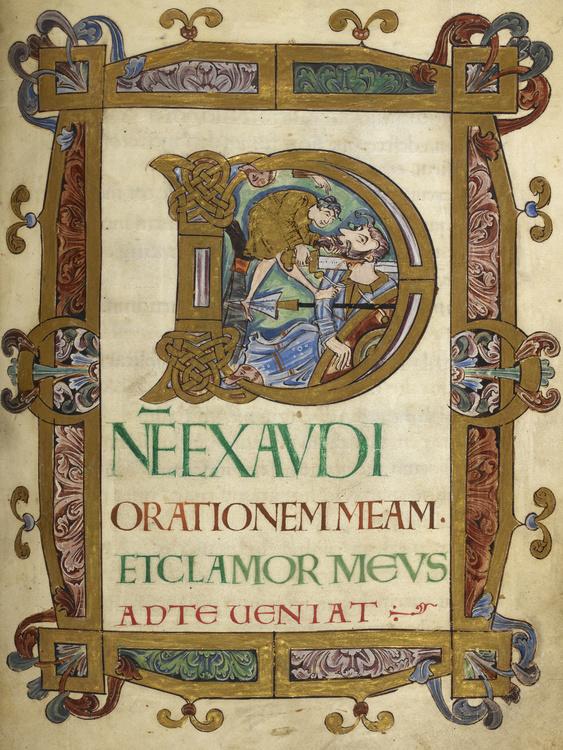 D
NĒEXAVDI
ORATIONEM MEAM·
ETCLAMOR MEVS
ADTE UENIAT